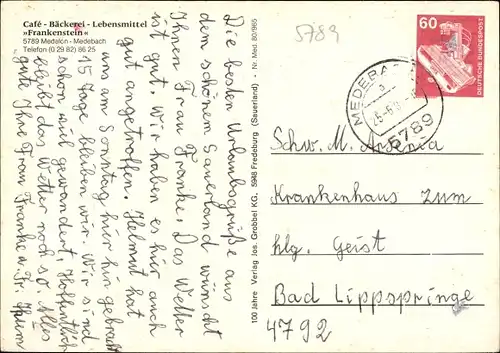 Café - Bäckerei - Lebensmittel
»Frankenstein«
5789 Medelon - Medebach
Telefon (0 29 82) 86 25
5789
Die besten Urlaubsgrüße aus
dem schönem Sauerland wünscht
Ihnen Frau Franke. Das Wetter
ist gut. Wir haben es hier auch
gut angetroffen. Helmut hat
uns am Sonntag hier hin gebracht
15 Tage bleiben wir. Wir sind
schon viel gewandert. Hoffentlich
bleibt das Wetter noch so. Alles
gute Ihre Frau Franke u. Fr.
100 Jahre Verlag Jos. Grobbel KG, 5948 Fredeburg (Sauerland) - Nr. Med. 80/965
60
DEUTSCHE BUNDESPOST
MEDEBA
a
5789
Schw. M. Arsenia
Krankenhaus zum
hlg. Geist
Bad Lippspringe
4792